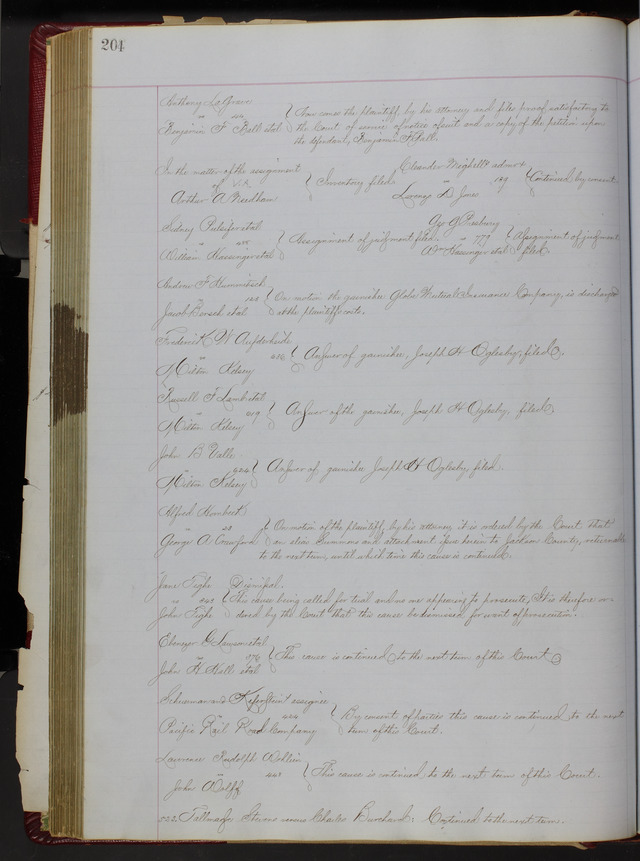 204
Anthony LaGrave
vs
Benjamin F Hall et al
Now comes the plaintiff, by his attorney and files proof satisfactory to
the Court of service of notice of suit and a copy of the petition upon
the defendant, Benjamin F Hall.
In the matter of the assignment
of
Arthur A. Needham
Inventory filed.
Oleander
vs 189
Jones
Continued by consent.
Sidney Pulsifer et al
vs
William Hassinger et al
Assignment of judgment filed.
vs 777
Wm Hassinger et al
Assignment of judgment
filed.
Andrew F
vs
Jacob Dorsch et al
On motion the garnishee Globe Mutual Insurance Company, is discharged
at the plaintiffs costs.
Frederick W Aufderheide
vs 416
Milton Kelsey
Answer of garnishee, Joseph H Oglesby, filed.
Russell F Lamb et al
vs 419
Milton Kelsey
Answer of the garnishee, Joseph H Oglesby, filed.
John B Valle
vs 424
Milton Kelsey
Answer of garnishee Joseph H Oglesby filed.
Alfred
vs 28
George A. Crawford
On motion of the plaintiff, by his attorney, it is ordered by the Court that
an alias Summons and attachment issue herein to Jackson County, returnable
to the next term, until which time this cause is continued.
Jane Tighe
vs
John Tighe
Dismissal.
This cause being called for trial and no one appearing to prosecute, It is therefore or-
dered by the Court that this cause be dismissed for want of prosecution.
Ebenezer G et al
vs
John H. Hall et al
This cause is continued to the next term of this Court.
assignee
vs 444
Pacific Rail Road Company
By consent of parties this cause is continued to the next
term of this Court.
Lawrence Rudolph
vs
John Wolff
This cause is continued to the next term of this Court.
522 Tallmadge Stevens versus Charles Burchard: Continued to the next term.